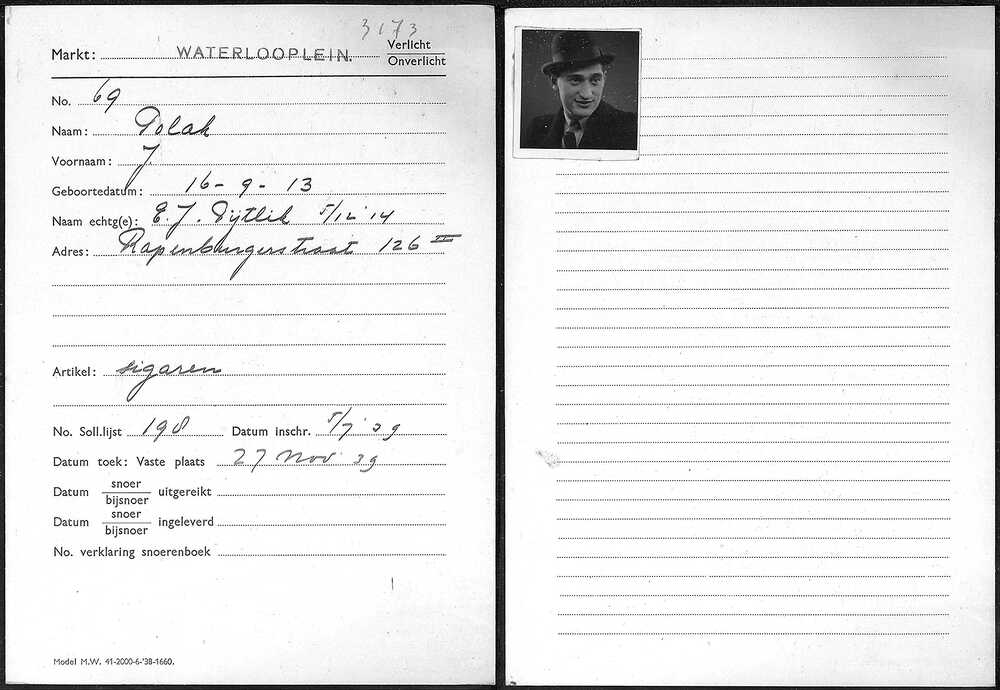 3173
Markt: WATERLOOPLEIN. Verlicht
Onverlicht
No. 69
Naam: Polak
Voornaam: J
Geboortedatum: 16-9-13
Naam echtg(e): E. J. 5/12 '14
Adres: Rapenburgerstraat 126 II
Artikel: sigaren
No. Soll.lijst 198 Datum inschr. 5/7 '39
Datum toek: Vaste plaats 27 Nov 39
Datum snoer
bijsnoer uitgereikt
Datum snoer
bijsnoer ingeleverd
No. verklaring snoerenboek
Model M.W. 41-2000-6-'38-1660.